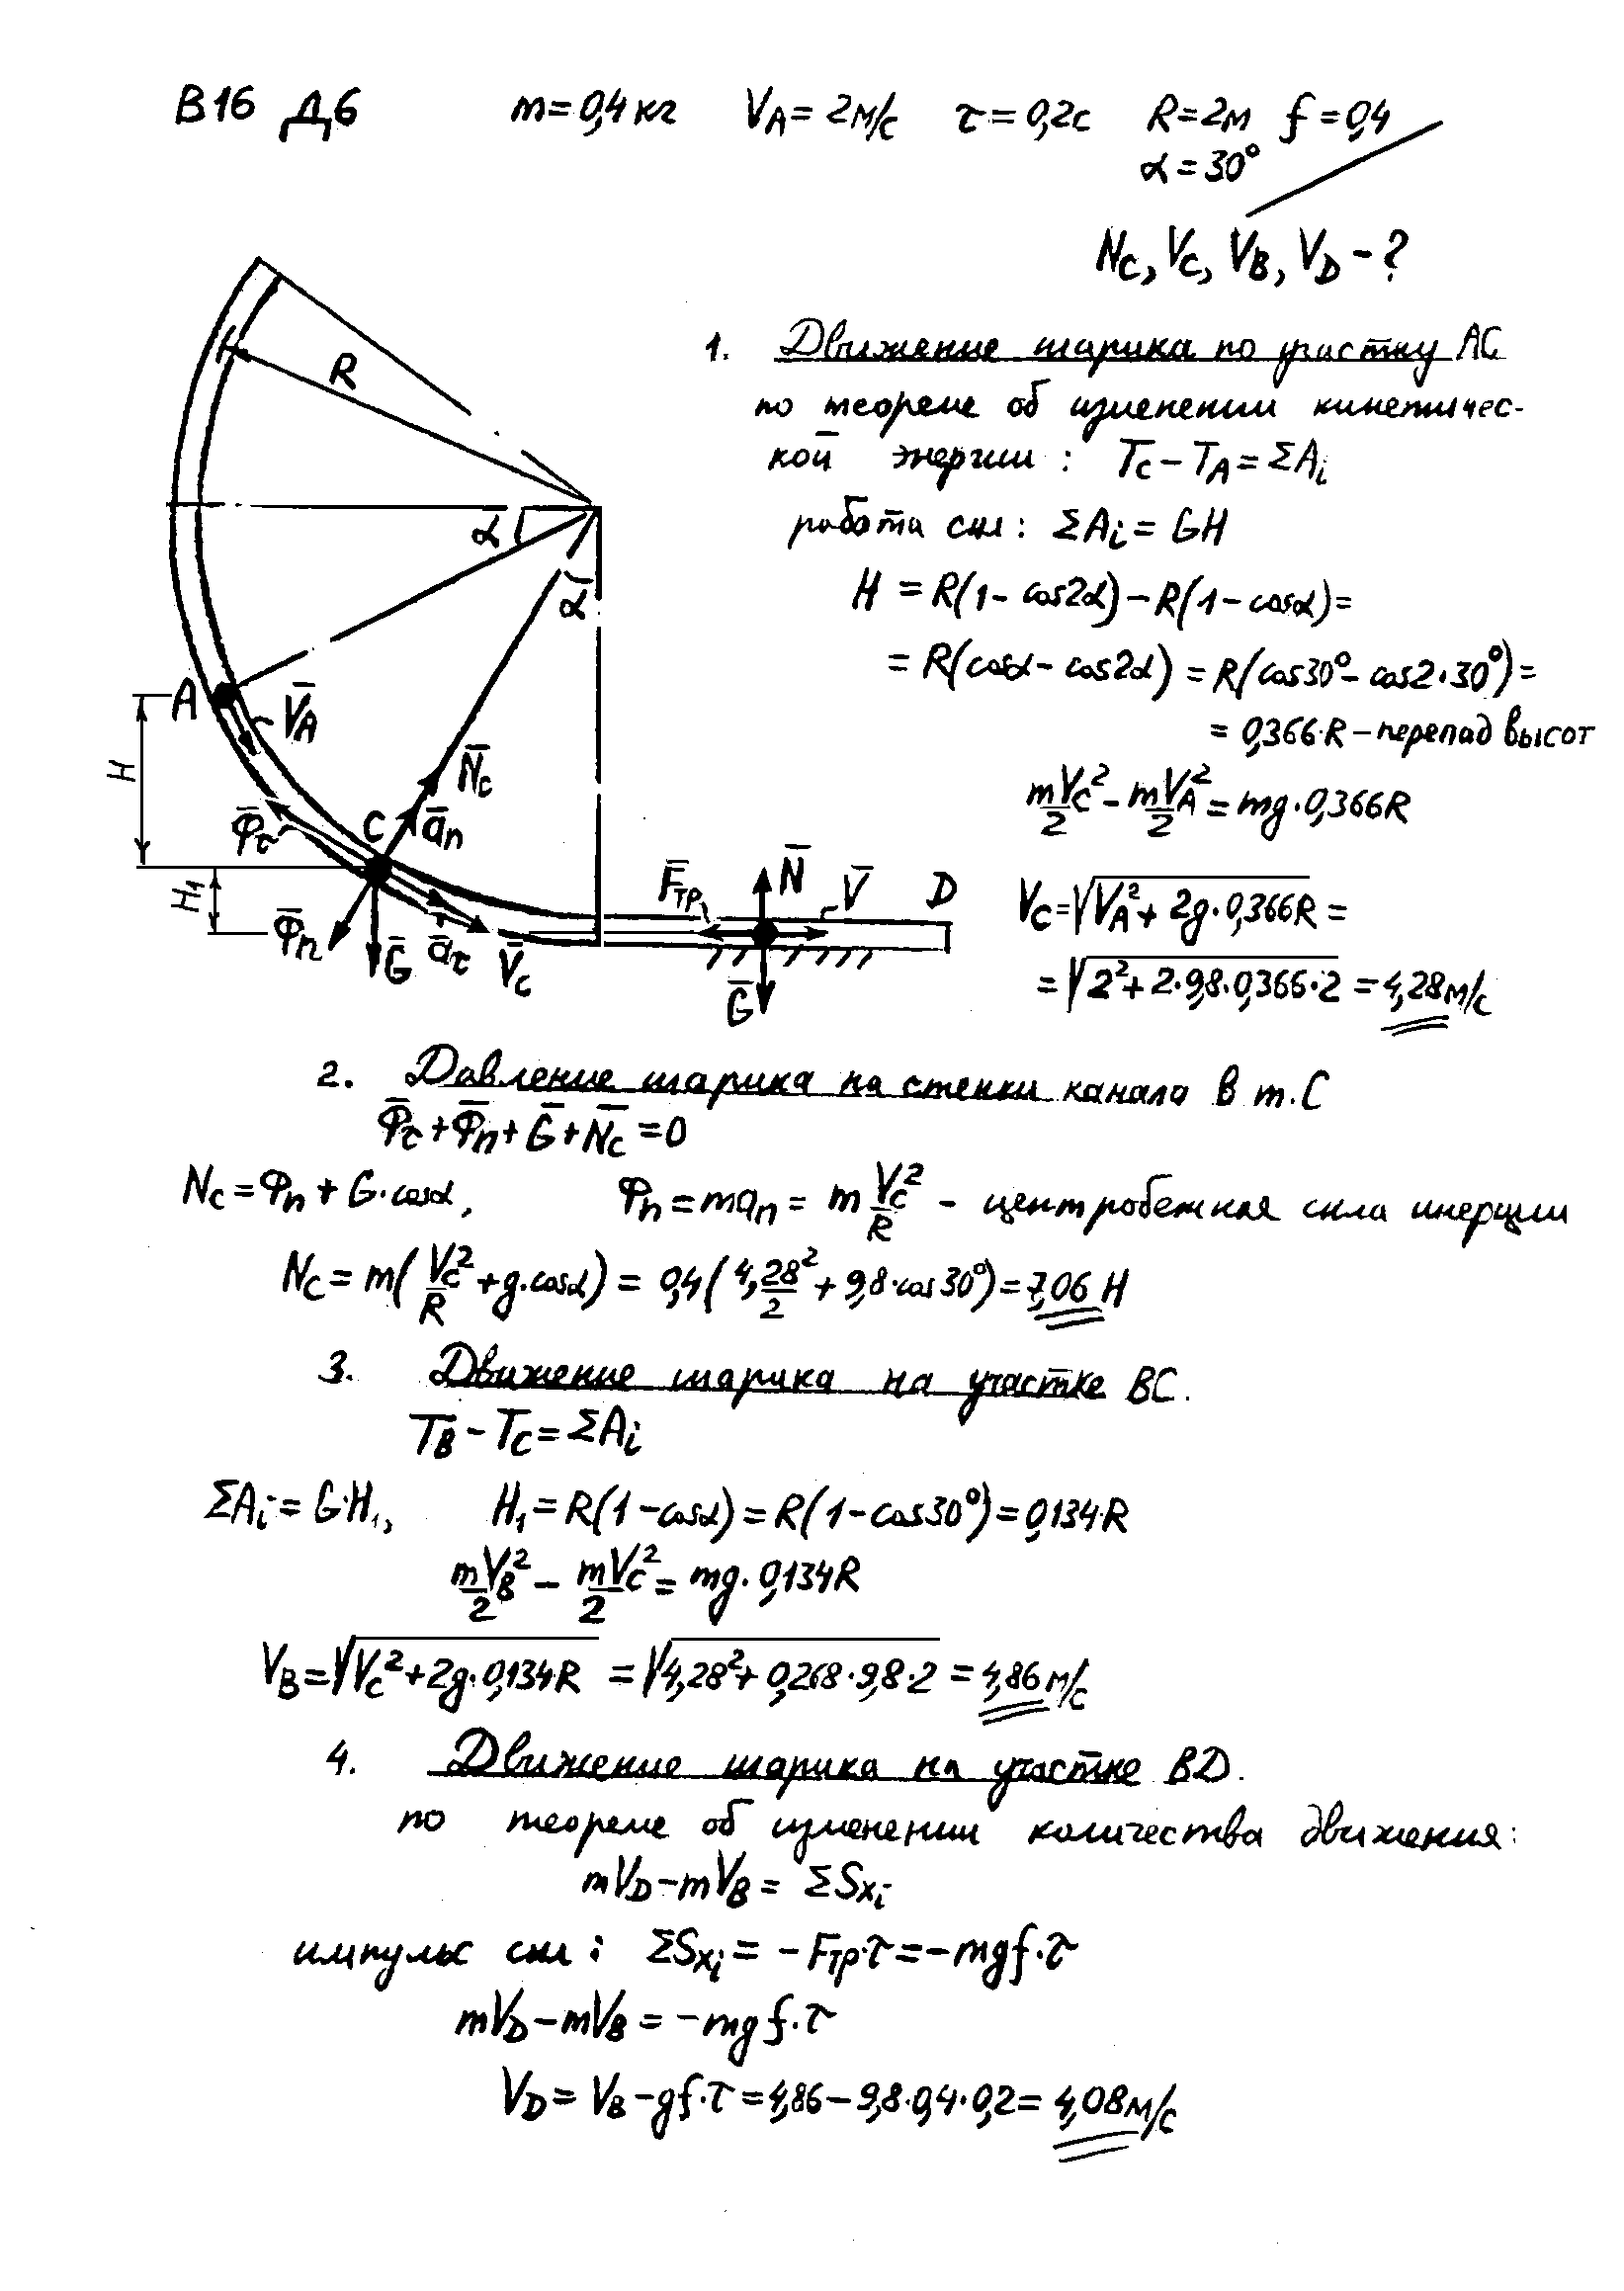 В16 Д6 m=0,4 кг V_A=2 м/с τ=0,2с R=2м f=0,4
α=30°
N_C, V_C, V_B, V_D - ?
R
α
α
A
V̄_A
H
N̄_C
ā_n
C
Φ̄_τ
H₁
Φ̄_n
Ḡ
ā_τ
V̄_C
F̄_тр
N̄
V̄
D
Ḡ
1. Движение шарика по участку AC
по теореме об изменении кинетичес-
кой энергии : T_C - T_A = ΣA_i
работа сил : ΣA_i = GH
H = R(1 - cos2α) - R(1 - cosα) =
= R(cosα - cos2α) = R(cos30° - cos2·30°) =
= 0,366·R - перепад высот
mV_C²/2 - mV_A²/2 = mg·0,366R
V_C = √(V_A² + 2g·0,366R) =
= √(2² + 2·9,8·0,366·2) = 4,28 м/с
2. Давление шарика на стенки канала в т.C
Φ̄_τ + Φ̄_n + Ḡ + N̄_C = 0
N_C = Φ_n + G·cosα, Φ_n = ma_n = m V_C²/R - центробежная сила инерции
N_C = m(V_C²/R + g·cosα) = 0,4(4,28²/2 + 9,8·cos30°) = 7,06 Н
3. Движение шарика на участке BC.
T_B - T_C = ΣA_i
ΣA_i = G·H₁, H₁ = R(1 - cosα) = R(1 - cos30°) = 0,134·R
mV_B²/2 - mV_C²/2 = mg·0,134R
V_B = √(V_C² + 2g·0,134·R) = √(4,28² + 0,268·9,8·2) = 4,86 м/с
4. Движение шарика на участке BD.
по теореме об изменении количества движения:
mV_D - mV_B = ΣS_xi
импульс сил : ΣS_xi = -F_тр·τ = -mgf·τ
mV_D - mV_B = -mgf·τ
V_D = V_B - gf·τ = 4,86 - 9,8·0,4·0,2 = 4,08 м/с